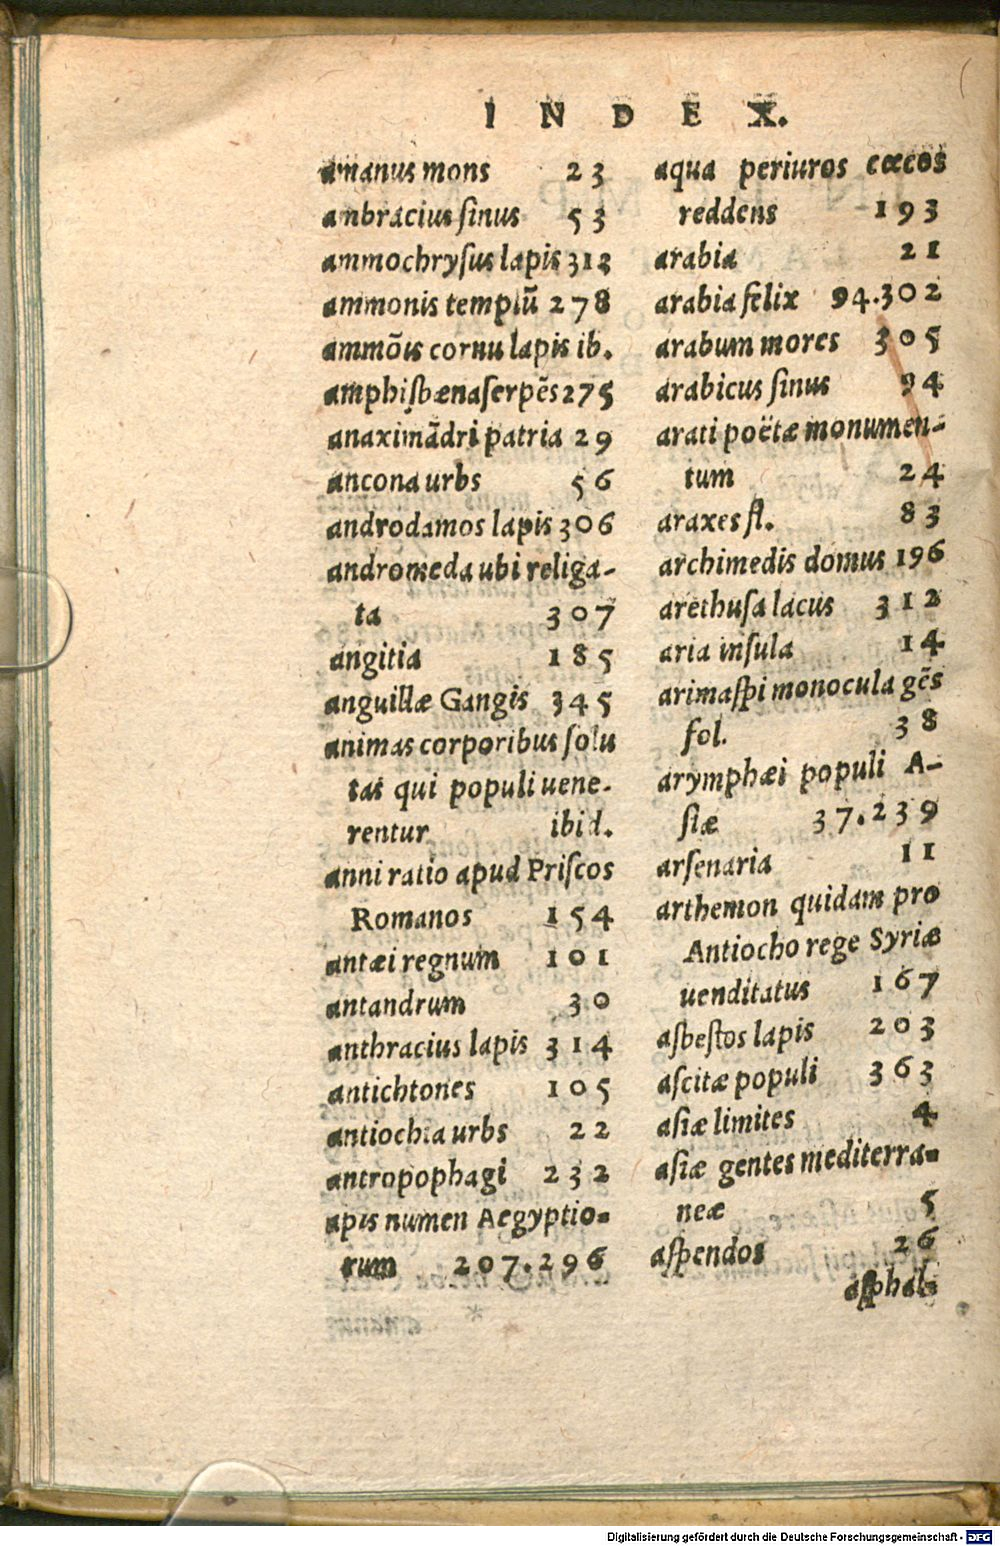 I N D E X.
amanus mons 23
anbracius ſinus 53
ammochryſus lapis 313
ammonis templū 278
ammōis cornu lapis ib.
amphiſbæna ſerpēs 275
anaximādri patria 29
ancona urbs 56
androdamos lapis 306
andromeda ubi religa-
ta 307
angitia 185
anguillæ Gangis 345
animas corporibus ſolu
tas qui populi uene-
rentur ibid.
anni ratio apud Priſcos
Romanos 154
antæi regnum 101
antandrum 30
anthracius lapis 314
antichtones 105
antiochia urbs 22
antropophagi 232
apis numen Aegyptio-
rum 207.296
aqua periuros cœcos
reddens 193
arabia 21
arabia felix 94.302
arabum mores 305
arabicus ſinus 94
arati poëtæ monumen-
tum 24
araxes fl. 83
archimedis domus 196
arethuſa lacus 312
aria inſula 14
arimaſpi monocula gēs
fol. 38
arymphæi populi A-
ſiæ 37.239
arſenaria 11
arthemon quidam pro
Antiocho rege Syriæ
uenditatus 167
aſbeſtos lapis 203
aſcitæ populi 363
aſiæ limites 4
aſiæ gentes mediterra-
neæ 5
aſpendos 26
aſphal-
Digitalisierung gefördert durch die Deutsche Forschungsgemeinschaft - DFG